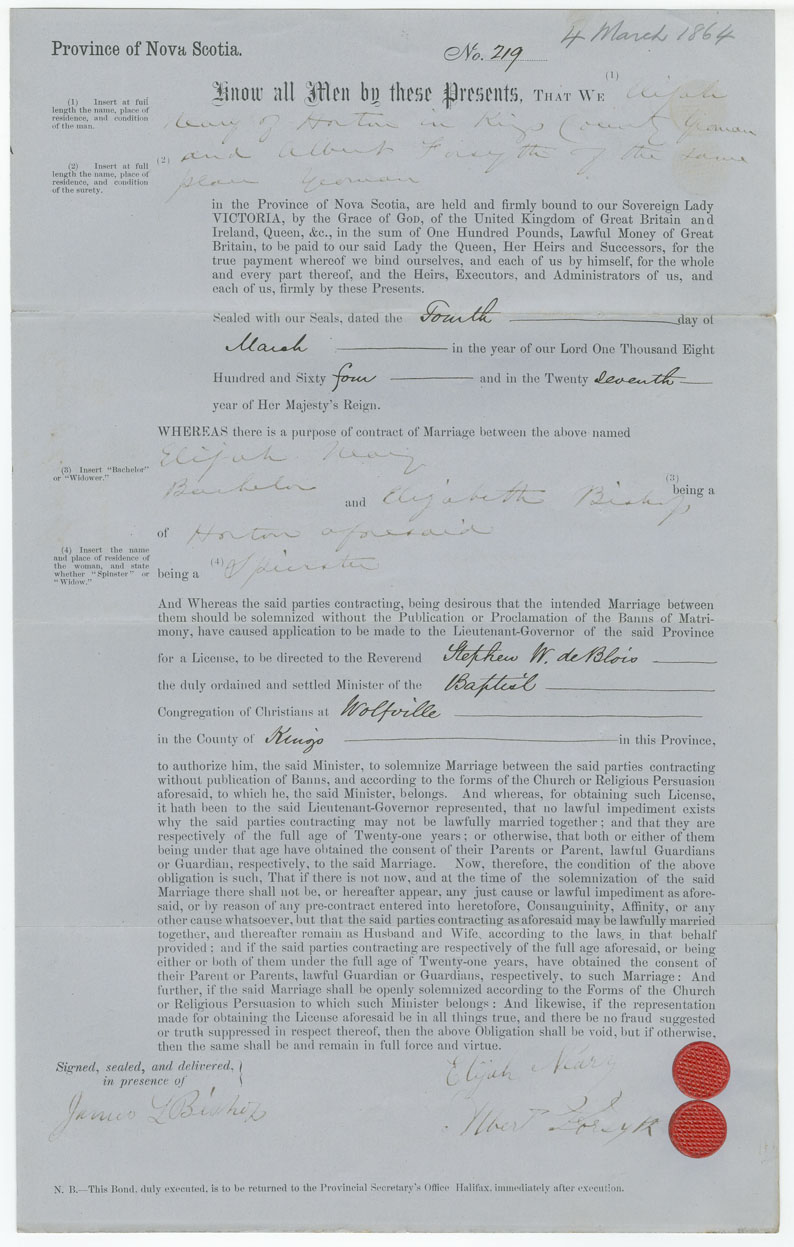 4 March 1864
Province of Nova Scotia.
No. 219
(1)
Know all Men by these Presents, THAT WE Elijah
(1) Insert at full
length the name, place of
residence, and condition
of the man.
of Horton in Kings County Yeoman
(2) and Albert Forsyth of the same
(2) Insert at full
length the name, place of
residence, and condition
of the surety.
place Yeoman
in the Province of Nova Scotia, are held and firmly bound to our Sovereign Lady
VICTORIA, by the Grace of GOD, of the United Kingdom of Great Britain and
Ireland, Queen, &c., in the sum of One Hundred Pounds, Lawful Money of Great
Britain, to be paid to our said Lady the Queen, Her Heirs and Successors, for the
true payment whereof we bind ourselves, and each of us by himself, for the whole
and every part thereof, and the Heirs, Executors, and Administrators of us, and
each of us, firmly by these Presents.
Sealed with our Seals, dated the Fourth day of
March in the year of our Lord One Thousand Eight
Hundred and Sixty four and in the Twenty seventh
year of Her Majesty's Reign.
WHEREAS there is a purpose of contract of Marriage between the above named
Elijah
(3) Insert "Bachelor"
or "Widower."
(3)
being a
Bachelor and Elizabeth Bishop
of Horton aforesaid
(4) Insert the name
and place of residence of
the woman, and state
whether "Spinster" or
"Widow."
being a (4) Spinster
And Whereas the said parties contracting, being desirous that the intended Marriage between
them should be solemnized without the Publication or Proclamation of the Banns of Matri-
mony, have caused application to be made to the Lieutenant-Governor of the said Province
for a License, to be directed to the Reverend Stephen W. deBlois
the duly ordained and settled Minister of the Baptist
Congregation of Christians at Wolfville
in the County of Kings in this Province,
to authorize him, the said Minister, to solemnize Marriage between the said parties contracting
without publication of Banns, and according to the forms of the Church or Religious Persuasion
aforesaid, to which he, the said Minister, belongs. And whereas, for obtaining such License,
it hath been to the said Lieutenant-Governor represented, that no lawful impediment exists
why the said parties contracting may not be lawfully married together; and that they are
respectively of the full age of Twenty-one years; or otherwise, that both or either of them
being under that age have obtained the consent of their Parents or Parent, lawful Guardians
or Guardian, respectively, to the said Marriage. Now, therefore, the condition of the above
obligation is such, That if there is not now, and at the time of the solemnization of the said
Marriage there shall not be, or hereafter appear, any just cause or lawful impediment as afore-
said, or by reason of any pre-contract entered into heretofore, Consanguinity, Affinity, or any
other cause whatsoever, but that the said parties contracting as aforesaid may be lawfully married
together, and thereafter remain as Husband and Wife, according to the laws in that behalf
provided; and if the said parties contracting are respectively of the full age aforesaid, or being
either or both of them under the full age of Twenty-one years, have obtained the consent of
their Parent or Parents, lawful Guardian or Guardians, respectively, to such Marriage: And
further, if the said Marriage shall be openly solemnized according to the Forms of the Church
or Religious Persuasion to which such Minister belongs: And likewise, if the representation
made for obtaining the License aforesaid be in all things true, and there be no fraud suggested
or truth suppressed in respect thereof, then the above Obligation shall be void, but if otherwise,
then the same shall be and remain in full force and virtue.
Signed, sealed, and delivered,
in presence of
Elijah
James L Bishop
Albert Forsyth
N. B.—This Bond, duly executed, is to be returned to the Provincial Secretary's Office Halifax, immediately after execution.